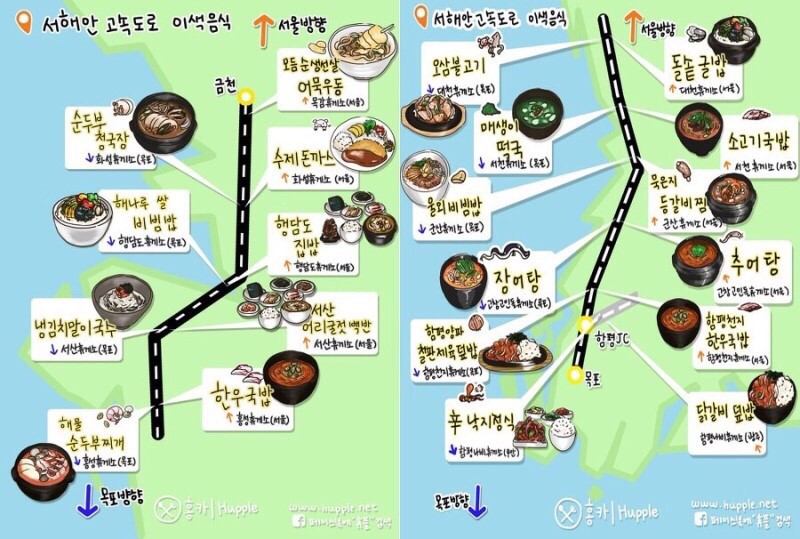 서해안 고속도로 이색음식
서울방향
금천
모듬순생선살
어묵우동
목감휴게소(서울)
순두부
청국장
화성휴게소(목포)
수제돈까스
화성휴게소(서울)
해나루 쌀
비빔밥
행담도휴게소(목포)
행담도
집밥
행담도휴게소(서울)
냉김치말이국수
서산휴게소(목포)
서산
어리굴젓백반
서산휴게소(서울)
한우국밥
홍성휴게소(서울)
해물
순두부찌개
홍성휴게소(목포)
목포방향
흥카|Hupple
www.hupple.net
페이스북에"휴플"검색
서해안고속도로 이색음식
서울방향
오삼불고기
대천휴게소(목포)
돌솥굴밥
대천휴게소(서울)
매생이
떡국
서천휴게소(목포)
소고기국밥
서천휴게소(서울)
울외비빔밥
군산휴게소(목포)
묵은지
등갈비찜
군산휴게소(서울)
장어탕
고창고인돌휴게소(목포)
추어탕
고창고인돌휴게소(서울)
함평양파
철판제육덮밥
함평천지휴게소(목포)
함평JC
함평천지
한우국밥
함평천지휴게소(서울)
목포
辛낙지정식
함평나비휴게소(무안)
닭갈비덮밥
함평나비휴게소(광주)
목포방향
흥카|Hupple
www.hupple.net
페이스북에"휴플"검색